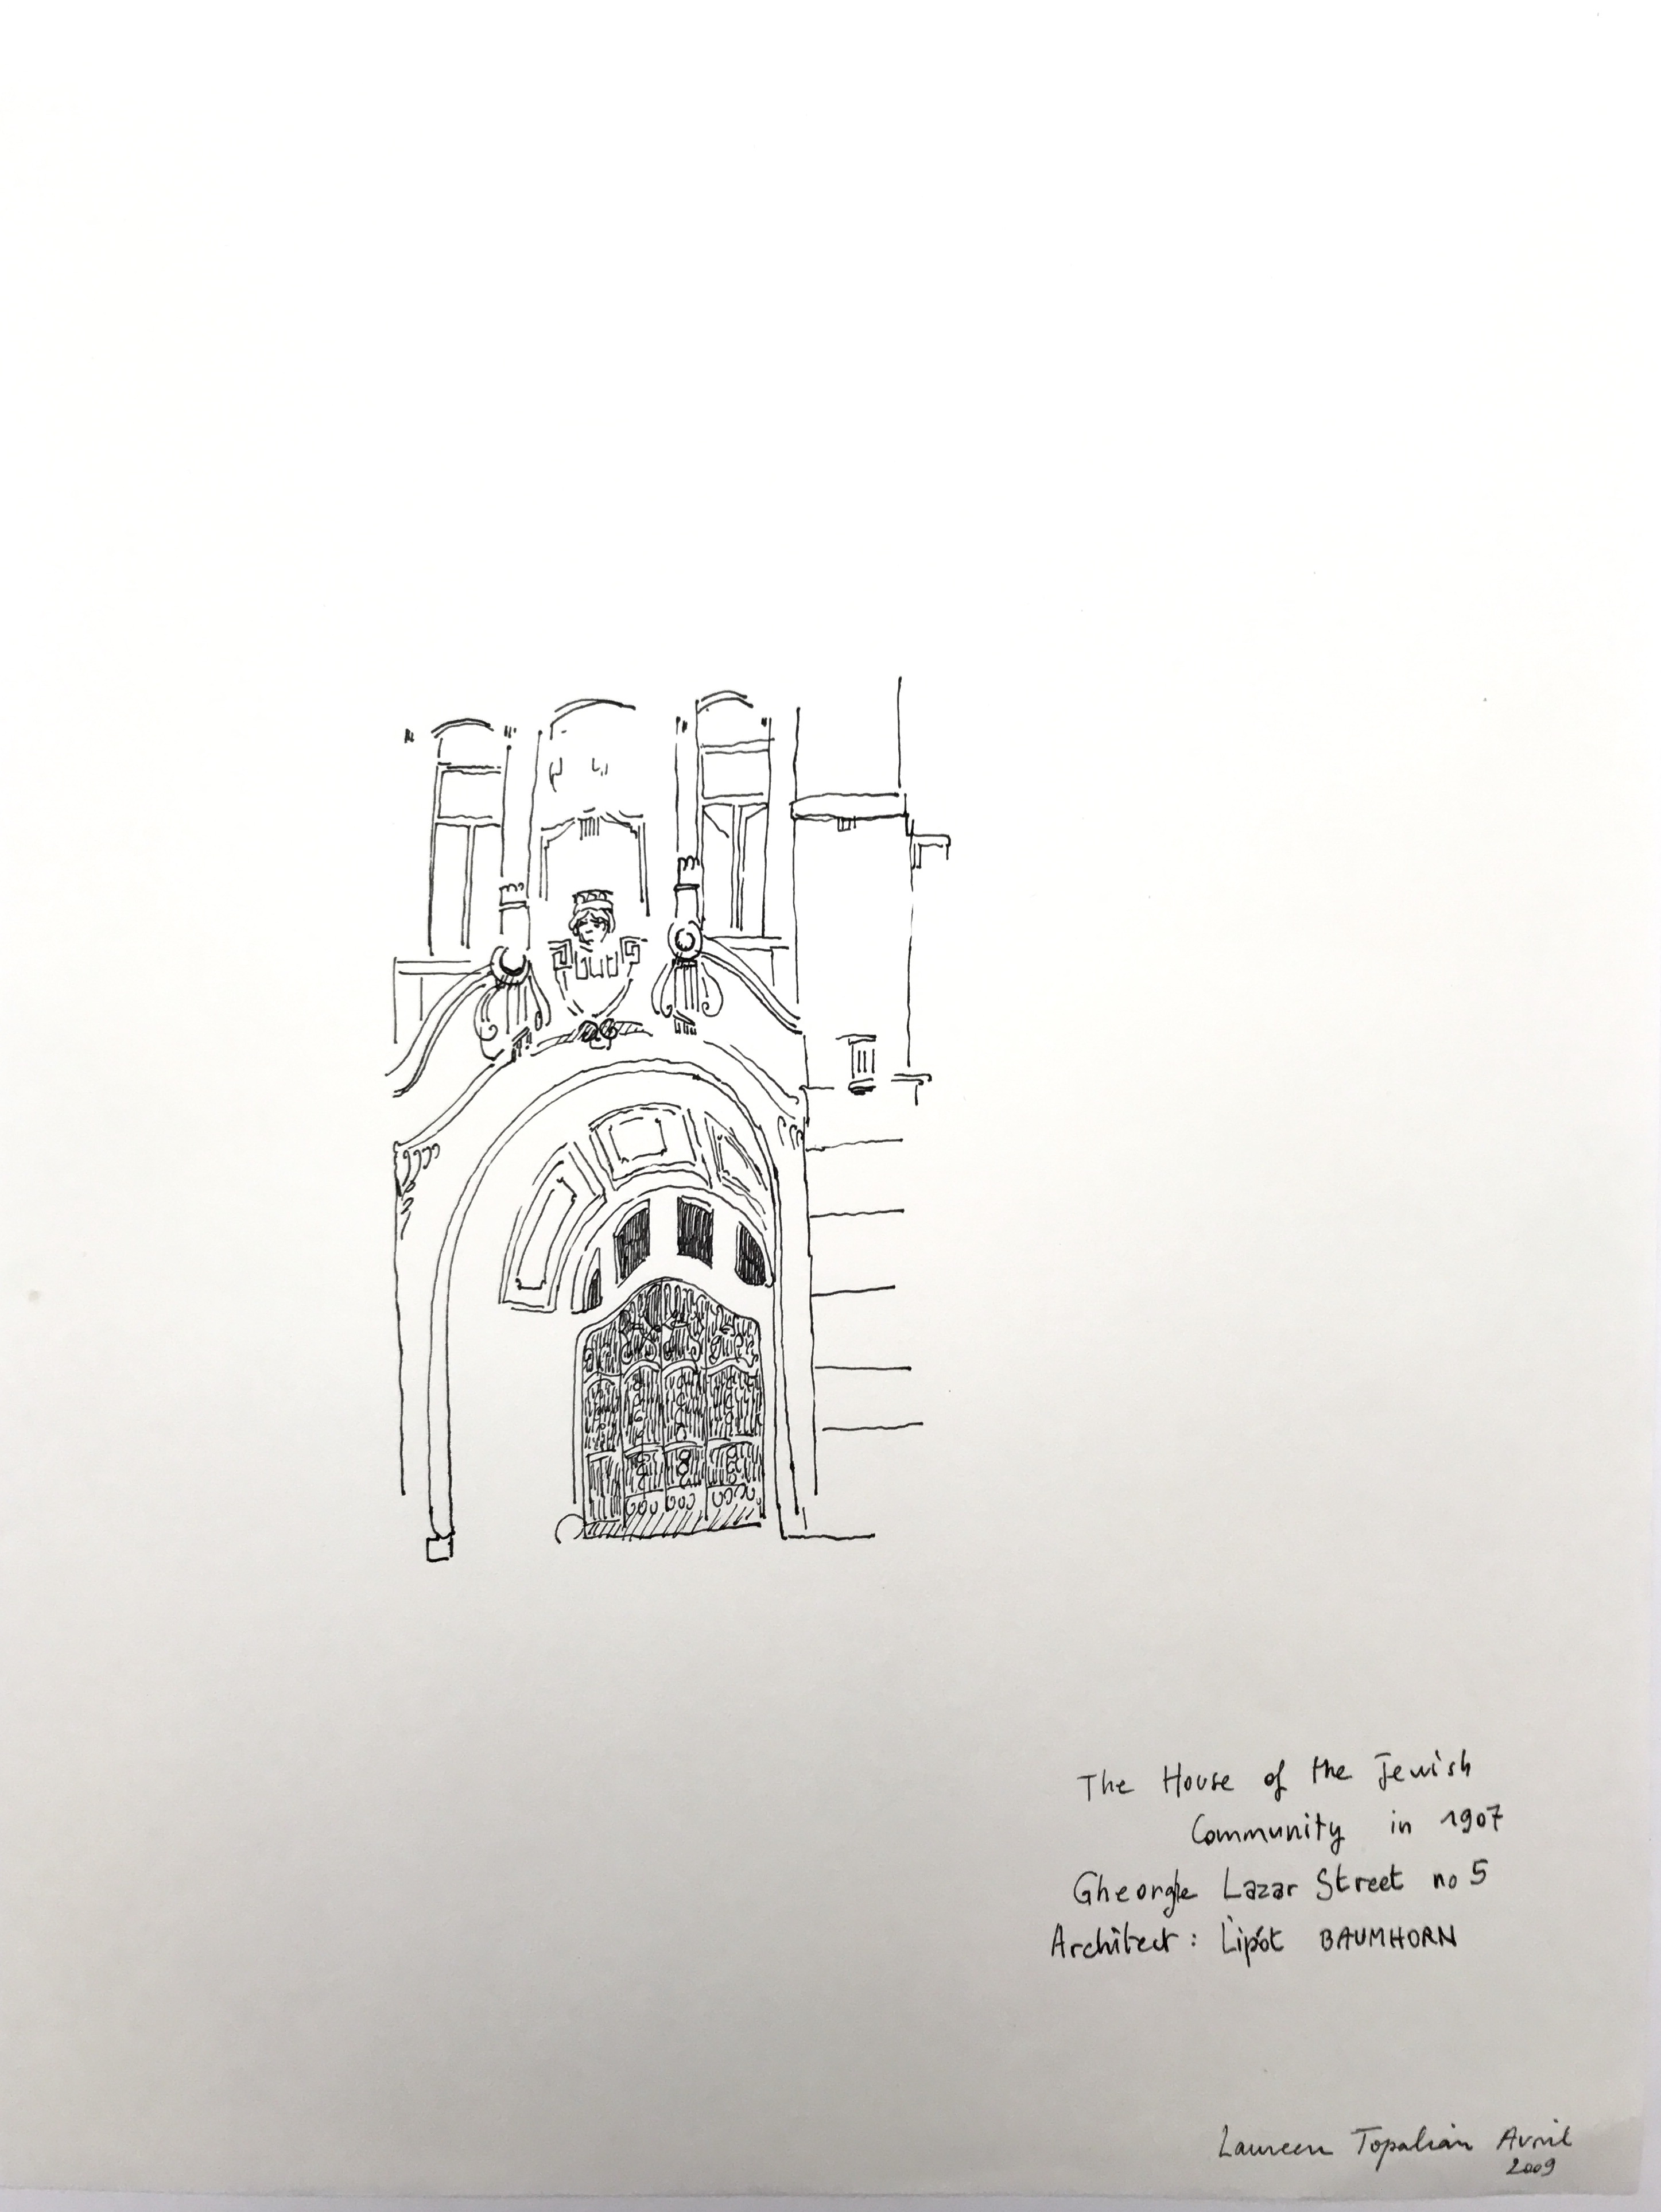 The House of the Jewish
Community in 1907
Gheorghe Lazar Street no 5
Architect : Lipót BAUMHORN
Laureen Topalian Avril
2009